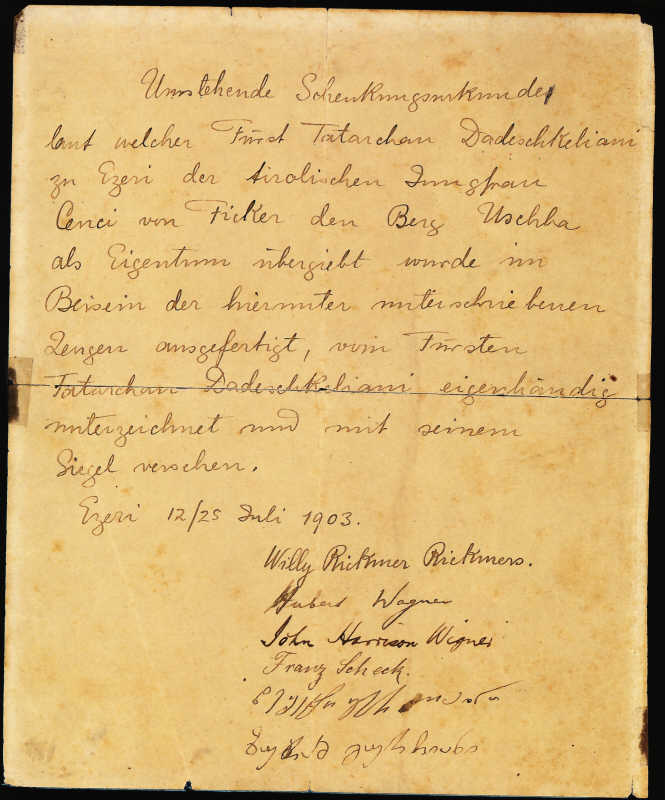 Umstehende Schenkungsurkunde,
laut welcher Fürst Tatarchan Dadeschkeliani
zu Ezeri der tirolischen Jungfrau
Cenci von Ficker den Berg Uschba
als Eigentum übergiebt wurde im
Beisein der hierunter unterschriebenen
Zeugen ausgefertigt, vom Fürsten
Tatarchan Dadeschkeliani eigenhändig
unterzeichnet und mit seinem
Siegel versehen.
Ezeri 12/25 Juli 1903.
Willy Rickmer Rickmers.
Hubert Wagner
John Harrison Wigner
Franz Scheck.